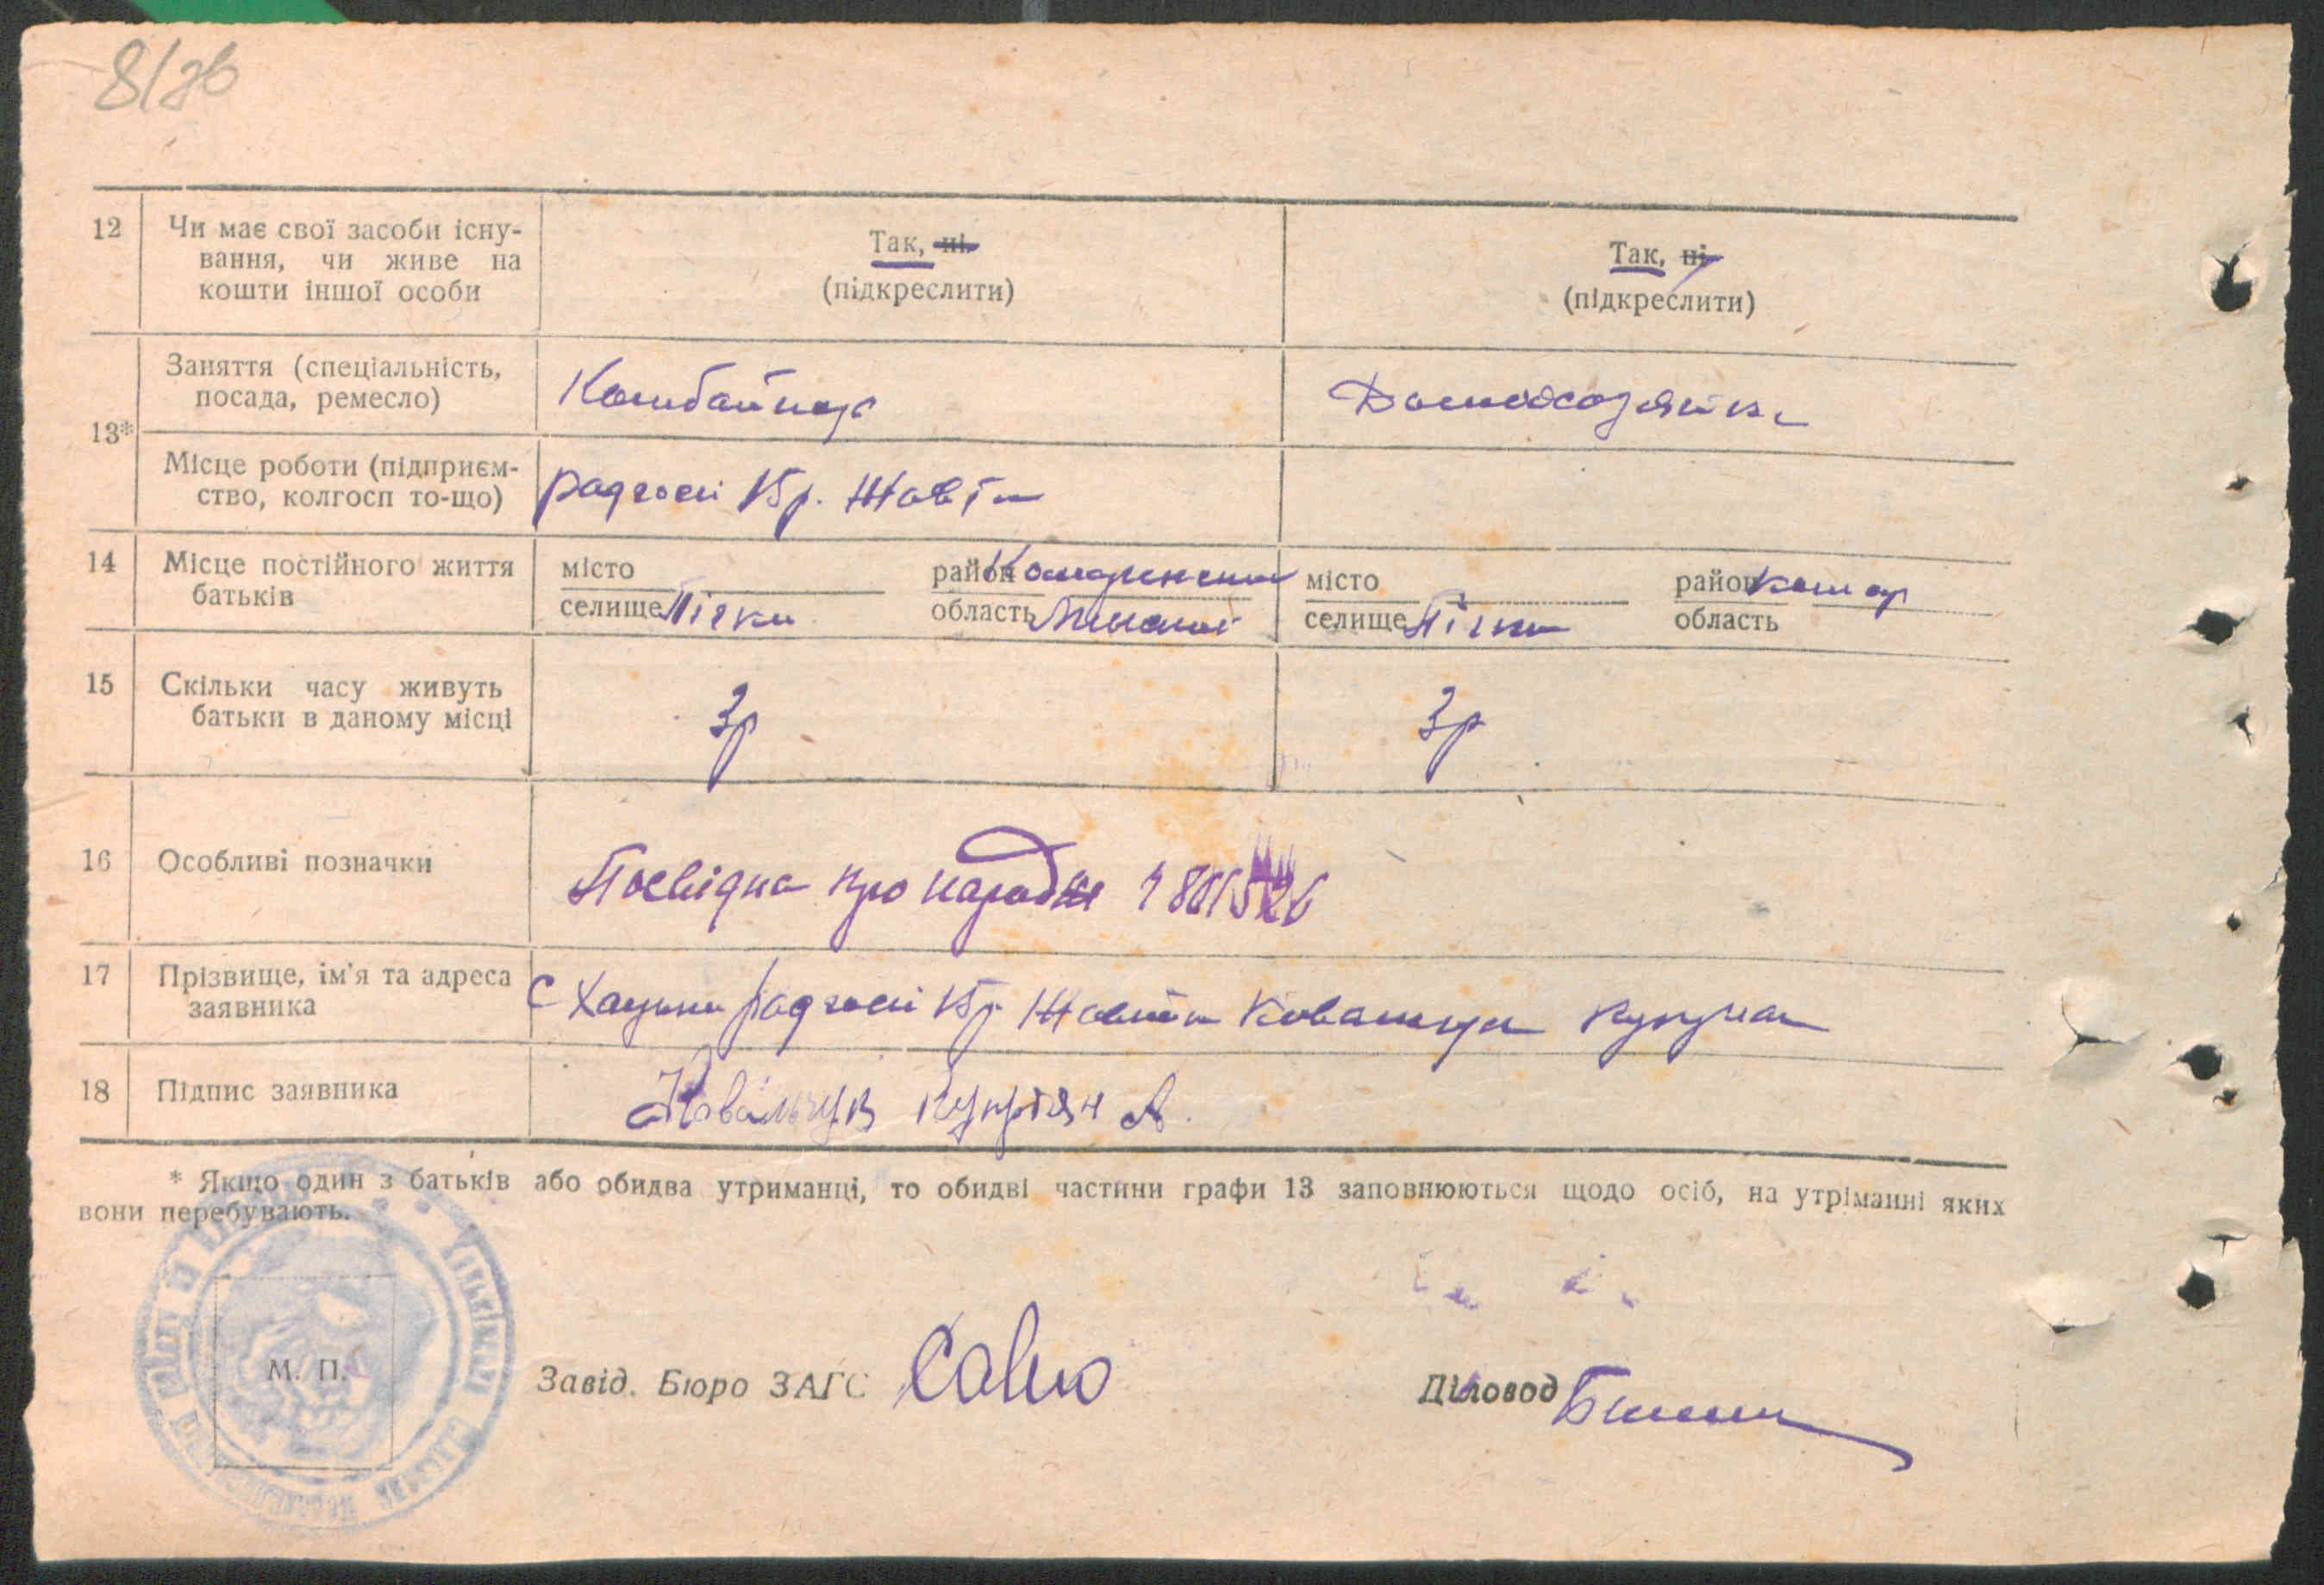 12 Чи має свої засоби існу-
вання, чи живе на
кошти іншої особи
Так, ні.
(підкреслити)
Так, ні
(підкреслити)
13*
Заняття (спеціальність,
посада, ремесло)
Комбайнер
Домохозяйка
Місце роботи (підприєм-
ство, колгосп то-що)
радгосп Кр. Жовтн
14 Місце постійного життя
батьків
місто
район
селище
область
місто
район Комар
селище
область
15 Скільки часу живуть
батьки в даному місці
3р
3р
16 Особливі позначки
Посвідка про народж
17 Прізвище, ім'я та адреса
заявника
с радгосп Кр. Жовтн Ковальчук
18 Підпис заявника
Ковальчук Купріян А.
* Якщо один з батьків або обидва утриманці, то обидві частини графи 13 заповнюються щодо осіб, на утріманні яких
вони перебувають.
М. П.
Завід. Бюро ЗАГС
Діловод